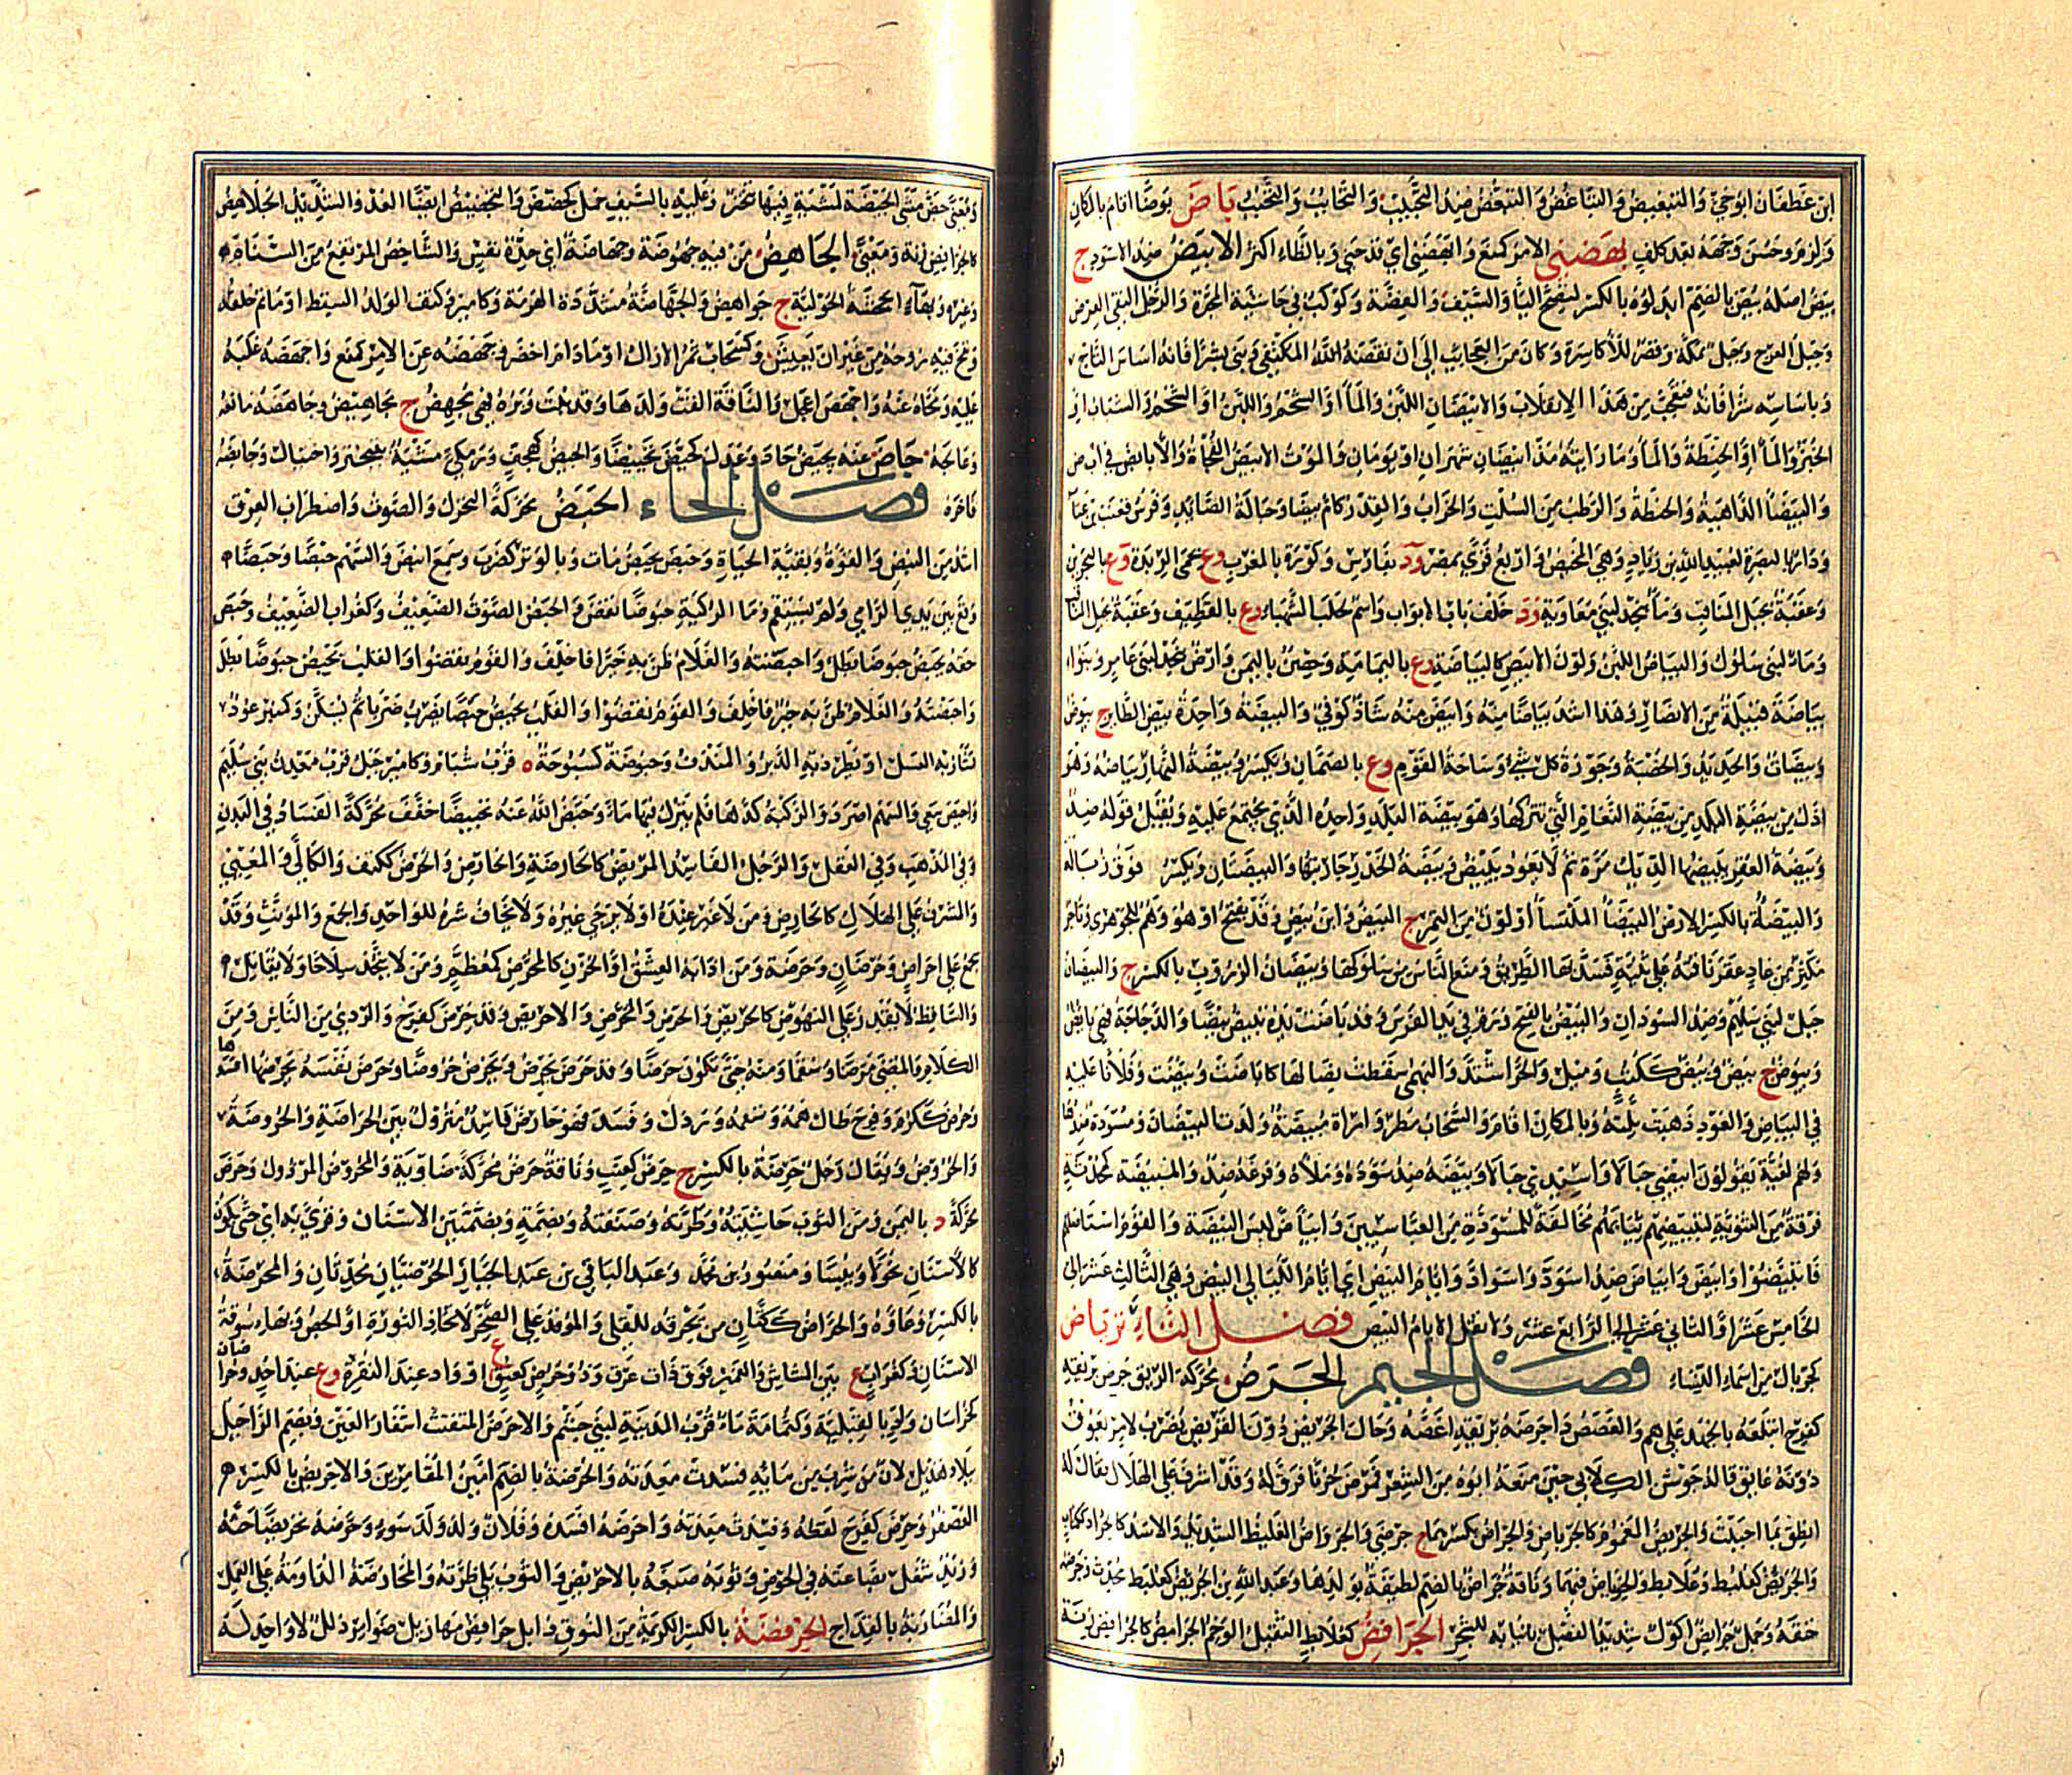 ابن غطفان ابو حي والتبغيض والتباغض والتبغض ضد التحبيب والتحابب والتحبب باض بوضا اقام بالمكان
ولزم وحسن وجهه بعد كلف بهضني الامر كمنع وابهضني اي فدحني وبالظاء اكثر الابيض ضد الاسود ج
بيض اصله بيض بالضم ابدلوه بالكسر لتصح الياء والسيف والفضة وكوكب في حاشية المجرة والرجل النقي العرض
وجبل العرج وجبل بمكة وقصر للاكاسرة وكان من العجائب الى ان نقضه المكتفي وبنى بشرافاته اساس التاج
وباساسه شرافاته فتعجب من هذا الانقلاب والابيضان اللبن والماء او الشحم واللبن او الشحم والشباب او
الخبز والماء او الحنطة والماء وما رايته مذ ابيضان شهران او يومان والموت الابيض الفجأة والابايض في ابض
والبيضاء الداهية والحنطة والرطب من السلت والخراب والقدر كام بيضاء وحبالة الصائد وفرس قعنب بن عتاب
ودار بالبصرة لعبيد الله بن زياد وهي المخيس واربع قرى بمصر ود بفارس وكورة بالمغرب وع بحمى الربذة وع بالبحرين
وعقبة بجبل المناقب وماء بنجد لبني معاوية ود خلف باب الابواب واسم لحلب الشهباء وع بالقطيف وعقبة
وماء لبني سلول والبياض اللبن ولون الابيض كالبياضة وع باليمامة وحصن باليمن وارض بنجد لبني عامر وبنو
بياضة قبيلة من الانصار وهذا اشد بياضا منه وابيض منه شاذ كوفي والبيضة واحدة بيض الطائر ج بيوض
وبيضات والحديد والخصية وحوزة كل شيء وساحة القوم وع بالصمان ويكسر وبيضة النهار بياضه وهو
اذل من بيضة البلد من بيضة النعام التي تتركها وهو بيضة البلد واحده الذي يجتمع عليه ويقبل قوله ضد
وبيضة العقر يبيضها الديك مرة ثم لا يعود وبيضة الخدر جاريتها والبيضتان ويكسر فوق زبالة
والبيضة بالكسر الارض البيضاء الملساء او لون من التمر ج البيض وابن بيض وقد يفتح او هو وهم للجوهري تاجر
مكثر من عاد عقر ناقته على ثنية فسد بها الطريق ومنع الناس من سلوكها وبيضان الزروب بالكسر ج والبيضان
جبل لبني سليم وضد السودان والبيض بالفتح ورم في يد الفرس وقد باضت يده تبيض بيضا والدجاجة فهي بائض
وبيوض ج بيض وبيض ككتب وميل والحر اشتد والبهمى سقطت نصالها كاباضت وبيضت وفلانا غلبه
في البياض والعود ذهبت بلته وبالمكان اقام والسحاب مطر وامراة مبيضة ولدت البيضان ومسودة ضدها
ولهم لعبة يقولون ابيضي حبالا واسيدي حبالا وبيضه ضد سوده وملاه وفرغه ضد والمبيضة كمحدثة
فرقة من الثنوية لتبييضهم ثيابهم مخالفة للمسودة من العباسيين وابتاض لبس البيضة والقوم استاصلهم
فابتيضوا وابيض وابياض ضد اسود واسواد وايام البيض اي ايام الليالي البيض وهي الثالث عشر الى
الخامس عشر او الثاني عشر الى الرابع عشر ولا تقل الايام البيض فصل التاء ترياض
كجريال من اسماء النساء فصل الجيم الجرض محركة الريق جرض بريقه
كفرح ابتلعه بالجهد على هم والغصص واجرضه بريقه اغصه وحال الجريض دون القريض يضرب لامر يعوق
دونه عائق قاله جوشن الكلابي حين منعه ابوه من الشعر فمرض حزنا فرق له وقد اشرف على الهلاك فقال له
انطق بما احببت والجريض المغموم كالجرياض والجرآض بكسرهما ج جرضى والجرواض الغليظ الشديد والاسد كالجرائض
والجرئض كعلبط وعلابط والجرياض فيهما وناقة جراض بالضم لطيفة بولدها وعبد الله بن الجرئض كعلبط محدث وجرضه
خنقه وجمل جرائض اكول شديد القصل بانيابه للشجر الجرافض كعلابط الثقيل الوخم الجرامض كالجرافض زنة
ومعنى جض مشى الجيضى لمشية فيها تبختر وعليه بالسيف حمل كجضض والتجضيض ايضا العدو الشديد الجلاهض
كالجرافض زنة ومعنى الجاهض من فيه جهوضة وجهاضة اي حدة نفس والشاخص المرتفع من السنام
وغيره وبهاء الجحشة الحولية ج جواهض والجهاضة مشددة الهرمة وكامير وكتف الولد السقط او ما تم خلقه
ونفخ فيه روحه من غير ان يعيش وكسحاب ثمر الاراك او ما دام اخضر وجهضه عن الامر كمنع واجهضه غلبه
عليه ونحاه عنه واجهض اعجل والناقة القت ولدها وقد نبت وبره فهي مجهض ج مجاهيض وجاهضه مانعه
وعاجله جاض عنه يجيض حاد وعدل كجيض تجييضا والجيض كهجف وزمكى مشية بتبختر واختيال وجايضه
فاخره فصل الحاء الحبض محركة التحرك والصوت واضطراب العرق
اشد من النبض والقوة وبقية الحياة وحبض يحبض مات وبالوتر كضرب وسمع انبض والسهم حبضا وحبضا
وقع بين يدي الرامي ولم يستقم وماء الركية حبوضا نقص والحبض الصوت الضعيف وكغراب الضعيف وحبض
حقه يحبض حبوضا بطل واحبضته والغلام ظن به خيرا فاخلف والقوم نقصوا والقلب يحبض حبوضا بطل
واحبضته والغلام ظن به خير فاخلف والقوم نقصوا والقلب يحبض حبضا يضرب ضربانا ثم يسكن وكمنبر عود
تشتار به العسل او تطرد به الدبر والمندف وحبوضة كسبوحة ه قرب شبام وكامير جبل قرب معدن بني سليم
واحبض سعى والسهم اصرد والركية كدها فلم يترك فيها ماء وحبض الله عنه تحبيضا خفف محركة الفساد في البدن
وفي المذهب وفي العقل والرجل الفاسد المريض كالحارضة والحارض والحرض ككتف والكال المعيي
والمشرف على الهلاك كالحارض ومن لا خير عنده او لا يرجى خيره ولا يخاف شره للواحد والجمع والمؤنث وقد
يجمع على احراض وحرضان وحرضة ومن اذابه العشق او الحزن كالمحرض كمعظم ومن لا يتخذ سلاحا ولا يقاتل
والساقط لا يقدر على النهوض كالحريض والحرض والاحريض وقد حرض كفرح والردي من الناس ومن
الكلام والمضنى مرضا وسقما ومنه حتى تكون حرضا وقد حرض يحرض ويحرض حروضا وحرض نفسه يحرضها افسدها
وحرض ككرم وفرح طال همه وسقمه ورذل وفسد فهو حارض فاسد متروك بين الحراضة والحروضة
والحروض ويقال رجل حرضة بالكسر ج حرض كعنب وناقة حرض محركة ضاوية والحروض المرذول وحرض
محركة د باليمن ومن الثوب حاشيته وطرته وصنفته وبضمة وبضمتين الاشنان وقرئ به اي حتى تكون
كالاشنان نحولا ويبسا ومسعود بن محمد وعبد الباقي بن عبد الجبار الحرضيان محدثان والمحرضة
بالكسر وعاؤه والحراض ككتان من يحرقه للقلي والموقد على الصخر لاتخاذ النورة او الجص وبهاء سوقة
الاشنان وكغراب ع بين المشاش والغمير فوق ذات عرق وذو حرض كعنق ع او واد عند النقرة وع عند احد وحرا
ضان
كخراسان واد بالقبلية وكثمامة ماء قرب المدينة لبني جشم والاحرض المتفتت اشفار العين وبضم الراء جبل
ببلاد هذيل لان من شرب من مائه فسدت معدته والحرضة بالضم امين المقامرين والاحريض بالكسر
العصفر وحرض كفرح لقطه وفسدت معدته واحرضه افسده وفلان ولد ولد سوء وحرضه تحريضا حثه
وزيد شغل بضاعته في الحرض وثوبه صبغه بالاحريض والثوب بلي طرته والمحارضة المداومة على العمل
والمضاربة بالقداح الحرفضة بالكسر الكريمة من النوق وابل حرافض مهازيل ضوامر ذلل لا واحد له